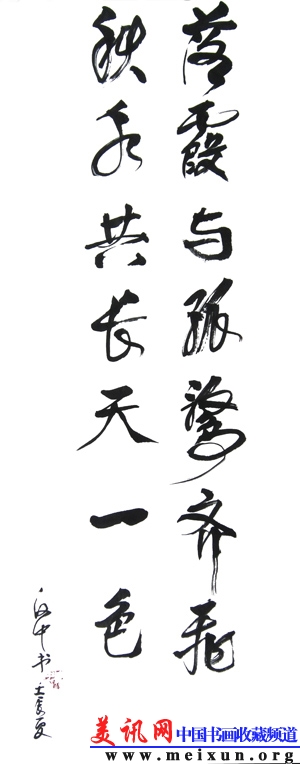 落霞与孤鹜齐飛
秋水共长天一色
汉中书壬辰夏
美讯网
中国书画收藏频道
www.meixun.org